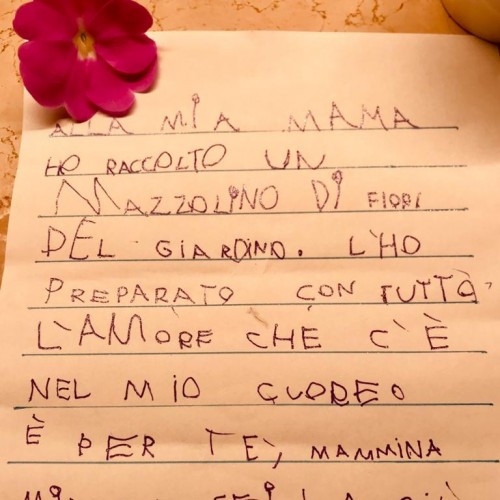 ALLA MIA MAMA
HO RACCOLTO UN
MAZZOLINO DI FIORI
DEL GIARDINO. L'HO
PREPARATO CON TUTTO
L'AMORE CHE C'È
NEL MIO CUOREO
È PER TE, MAMMINA